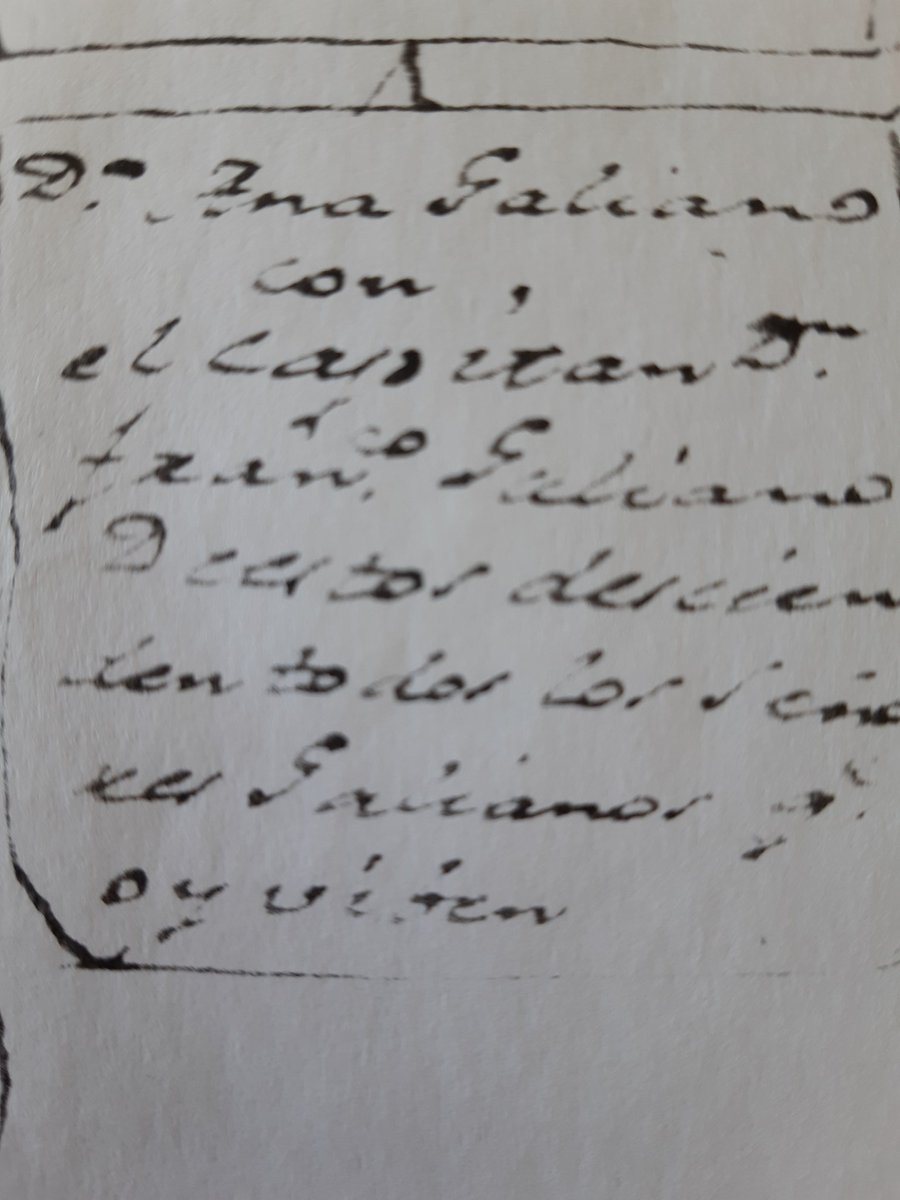 D.ª Ana Galiano
con
el Capitan D.ⁿ
fran.co Galiano
D estos descien
den todos los seño
res Galianos q.e
oy viven